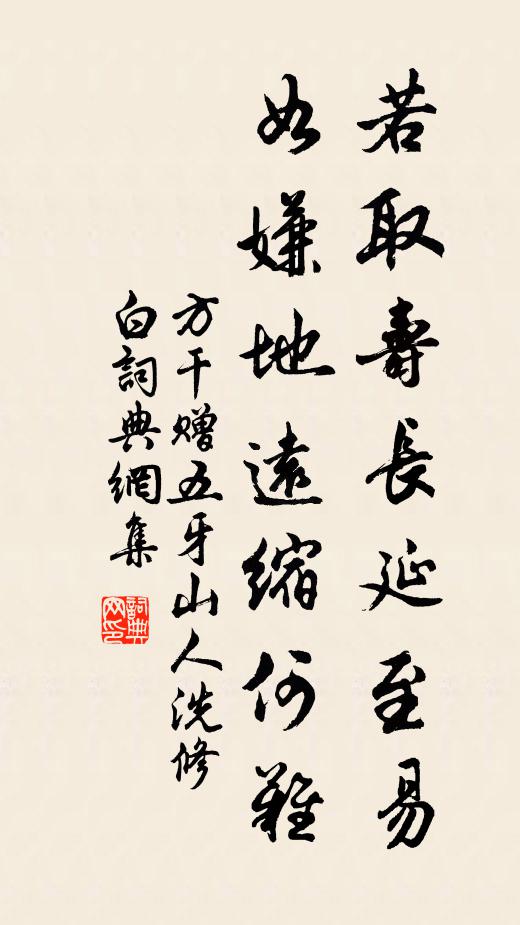 若取壽長延至易
如嫌地遠縮何難
方干贈五牙山人洗修
白詞典網集
詞典
网印